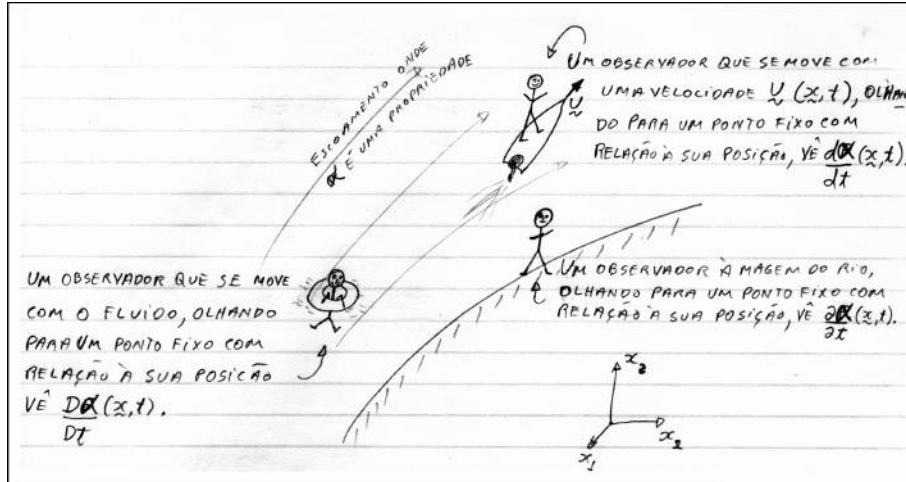 ESCOAMENTO ONDE
α É UMA PROPRIEDADE
UM OBSERVADOR QUE SE MOVE COM
UMA VELOCIDADE U (x,t), OLHAN
DO PARA UM PONTO FIXO COM
RELAÇÃO À SUA POSIÇÃO, VÊ dα(x,t).
dt
U
UM OBSERVADOR À MAGEM DO RIO,
OLHANDO PARA UM PONTO FIXO COM
RELAÇÃO À SUA POSIÇÃO, VÊ ∂α(x,t).
∂t
UM OBSERVADOR QUE SE MOVE
COM O FLUIDO, OLHANDO
PARA UM PONTO FIXO COM
RELAÇÃO À SUA POSICÃO
VÊ Dα(x,t).
Dt
x3
x2
x1